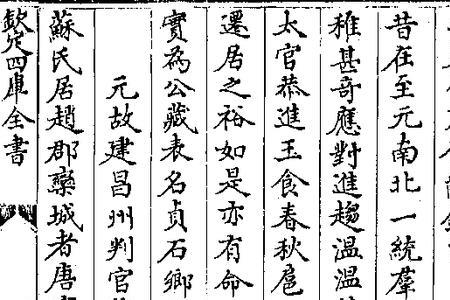 昔在至元南北一統羣
稚甚竒應對進趨温温
太官恭進玉食春秋扈
遷居之裕如是亦有命
實為公藏表名貞石鄉
元故建昌州判官
蘇氏居趙郡欒城者唐
欽定四庫全書